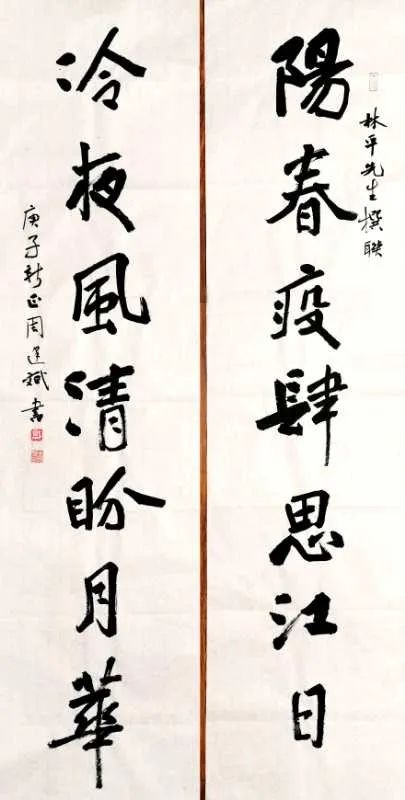 林平先生撰联
陽春疫肆思江日
冷夜風清盼月華
庚子新正周道斌書